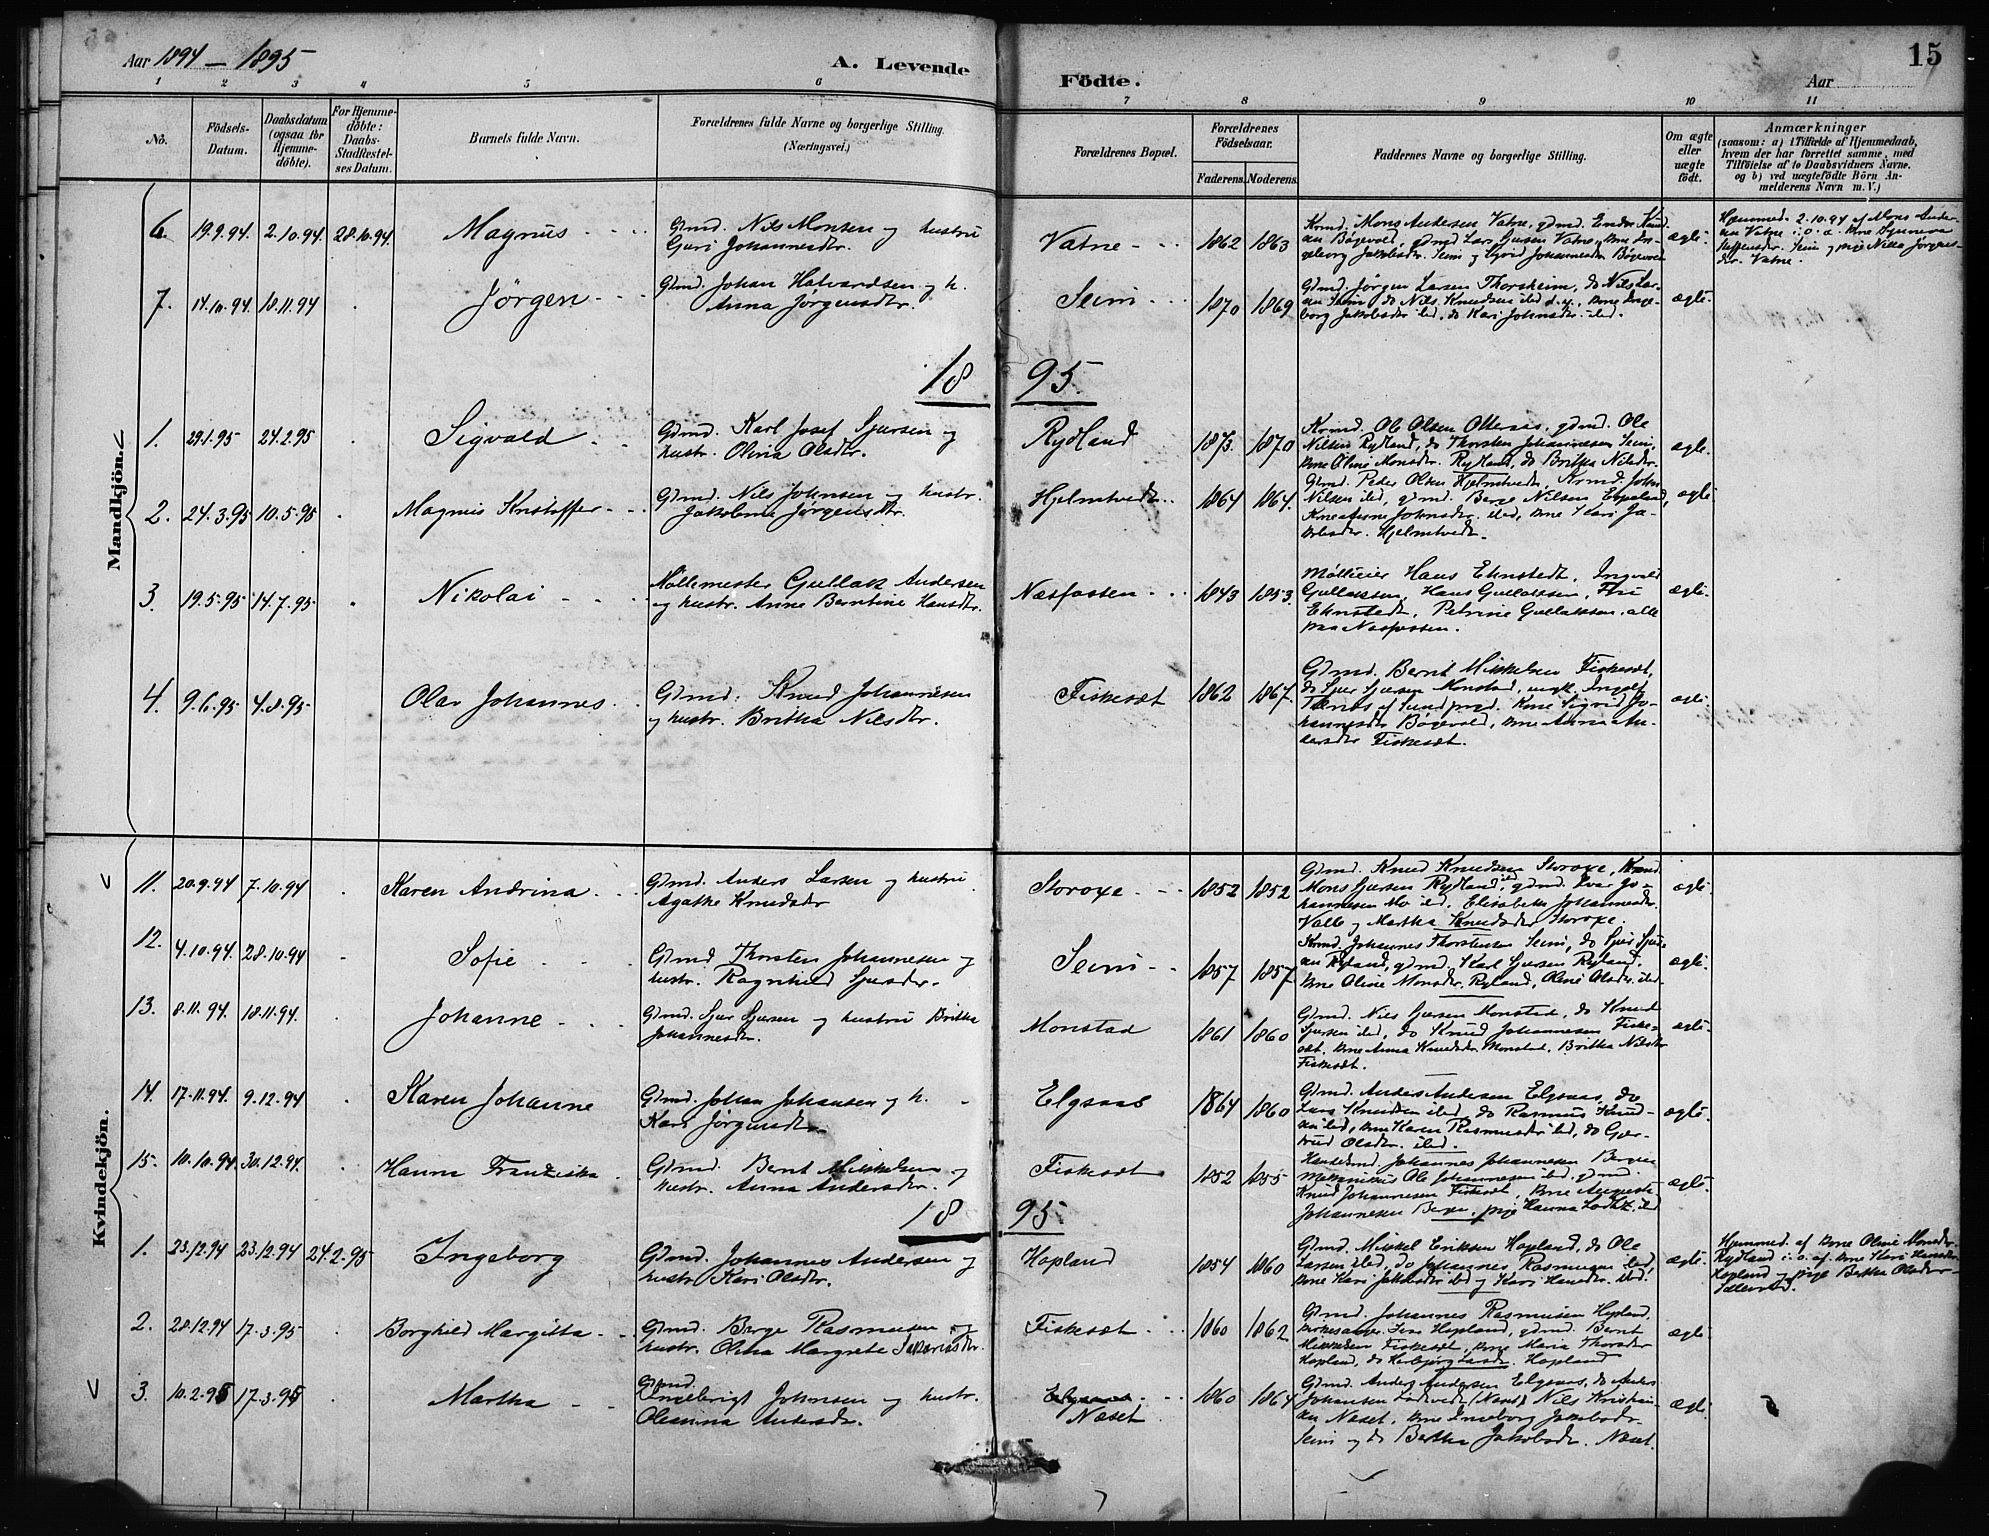 Aar 1894 – 1895
A. Levende
Födte.
Aar
15
1 2 3 4 5 6 7 8 9 10 11
No.
Födsels-
Datum.
Daabsdatum
(ogsaa for
Hjemme-
döbte).
For Hjemme-
döbte:
Daabs-
Stadfæstel-
ses Datum.
Barnets fulde Navn.
Forældrenes fulde Navne og borgerlige Stilling.
(Næringsvei.)
Forældrenes Bopæl.
Forældrenes
Födselsaar.
Faderens. Moderens.
Faddernes Navne og borgerlige Stilling.
Om ægte
eller
uægte
födt.
Anmærkninger
(saasom: a) i Tilfælde af Hjemmedaab,
hvem der har forrettet samme, med
Tilföielse af to Daabsvidners Navne.
og b) ved uægtefödte Börn An-
melderens Navn m. V.)
Mandkjön.
6. 19.9.94. 2.10.94. 28.10.94. Magnus
Gdmd. Nils Monsen og hustru
Guri Johannesdtr.
Vatne 1862 1863
Krmd. Mons Andersen Vatne, gdmd. Endre Knud-
sen Bøgevold, gdmd Lars Vatne, kne In-
geborg Jakobsdtr. Seim og Sigrid Johannesdtr Bøgevold
ægte.
Hjemmed. 2.10.94 af Mons Ander-
sen Vatne i. o. a. kne Synneva
Seim og pige Nilla Jørgens-
dtr. Vatne.
7. 14.10.94. 18.11.94 Jörgen
Gdmd. Johan Halvardsen og h.
Anna Jørgensdtr.
Seim 1870 1869
Gdmd. Jørgen Larsen Thorsheim, do Nils Lar-
sen Seim, do Nils Knudsen ibd d.y., kne Inge-
borg Jakobsdtr ibd, do Kari Johnsdtr. ibd.
ægte.
18 95.
1. 29.1.95 24.2.95 Sigvald
Gdmd. Karl Josef Sjursen og
hustr. Olina Olsdtr.
Rydland 1873. 1870
Krmd. Ole Olsen Otteraas, gdmd. Ole
Nilsen Rydland, do Thorsten Johannesen Seim,
kne Oline Monsdtr. Rydland, do Britha Nilsdtr.
ægte.
2. 24.3.95 10.5.95 Magnus Kristoffer
Gdmd. Nils Johnsen og hustr.
Jakobine Jørgensdtr.
Hjelmtvedt 1864 1864.
Gdmd. Peder Olsen Hjelmtvedt, Krmd. John
Nilsen ibd, gdmd. Berge Nilsen Espeland,
Kne Anne Johnsdtr. ibd, kne Kari Ja-
kobsdtr. Hjelmtvedt.
ægte.
3. 19.5.95 14.7.95 Nikolai
Møllemester Gullak Andersen
og hustr. Anne Berntine Hansdtr.
Næsfossen 1843 1853.
Mølleeier Hans Ehnstedt, Ingvald
Gullaksen, Hans Gullaksen, Fru
Ehnstedt, Petrine Gullaksen, alle
paa Næsfossen.
ægte.
4. 9.6.95 4.8.95 Olav Johannes
Gdmd. Knud Johannesen
og hustr. Britha Nilsdtr.
Fiskesæt 1862 1867.
Gdmd. Bernt Mikkelsen Fiskesæt,
do Sjur Sjursen Monstad, ungk. Ingolf
Tænes af Sund prgd. Kne Sigrid Jo-
hannesdtr Bøgevold, kne Anna An-
dersdtr Fiskesæt.
ægte.
Kvindekjön.
11. 20.9.94 7.10.94 Karen Andrina
Gdmd. Anders Larsen og hustru
Agathe Knudsdtr
Storoxe 1852 1852
Gdmd. Knud Knudsen Storoxe, Krmd.
Mons Sjursen Rydland, gdmd. Ivar Jo-
hannesen Mo ibd. Elisabeth Johannesdtr.
Valle og Martha Knudsdtr Storoxe.
ægte.
12. 4.10.94. 28.10.94 Sofie
Gdmd Thorsten Johannesen og
hustr. Ragnhild Sjursdtr.
Seim 1857 1857
Krmd. Johannes Thorstensen Seim, do Sjur Sjur-
sen Rydland, gdmd. Karl Sjursen Rydland,
kne Oline Monsdtr. Ryland, Oline Olsdtr. ibd.
ægte.
13. 8.11.94. 18.11.94. Johanne
Gdmd. Sjur Sjursen og hustru Britha
Johannesdtr.
Monstad 1861 1860
Gdmd. Nils Sjursen Monstad, do Knud
Sjursen ibd, do Knud Johannesen Fiske-
sæt, kne Anna Knudsdtr. Monstad, Britha Nilsdtr
Fiskesæt.
ægte.
14. 17.11.94. 9.12.94 Karen Johanne
Gdmd. Johan Johansen og h.
Kari Jørgensdtr.
Elgsaas 1864 1860
Gdmd. Anders Andersen Elgsaas, do
Lars Knudsen ibd, do Rasmus Knud-
sen ibd, kne Karen Rasmusdtr ibd, do Gjer-
trud Olsdtr. ibd.
ægte.
15. 10.10.94 30.12.94. Hanna Franziska
Gdmd. Bernt Mikkelsen og
hustr. Anna Andersdtr.
Fiskesæt 1852 1855
Handelsmd Johannes Johannesen Bergen
Mekanikus Ole Johannesen ibd, gdmd.
Knud Johannesen Fiskesæt, kne Auguste
Johannesen Bergen, pige Hanna ibd
ægte.
18 95.
1. 23.12.94 23.12.94 24.2.95 Ingeborg
Gdmd. Johannes Andersen og
hustr Kari Olsdtr.
Hopland 1854 1860
Gdmd. Mikkel Eriksen Hopland, do Ole
Larsen ibd, do Johannes Rasmusen ibd,
kne Kari Jakobsdtr ibd og Kari Hansdtr ibd.
ægte.
Hjemmed. af kne Oline Monsdtr.
Rydland i. o. af. kne Kari Hansdtr
Hopland og pige Bertha Olsdtr
2. 28.12.94 17.3.95 Borghild Margitta
Gdmd. Berge Rasmusen og
hustr. Olina Margrete Sakariasdtr.
Fiskesæt 1860 1862
Gdmd. Johannes Rasmusen Hopland,
kirkesanger Hopland, gdmd. Bernt
Mikkelsen Fiskesæt, kne Maria Thorsdtr
Hopland, do Herbjørg Larsdtr. Hopland
ægte.
3. 10.2.95 17.3.95 Martha
Gdmd.
Ingebrigt Johnsen og hustr.
Olianna Andersdtr.
Elgsaas
Næset 1860 1864
Gdmd. Anders Andersen Elgsaas, do Anders
Johansen, Nils Kristian-
sen Næset, kne Ingeborg Jakobsdtr.
Seim og do Bertha Jakobsdtr. Næset.
ægte.